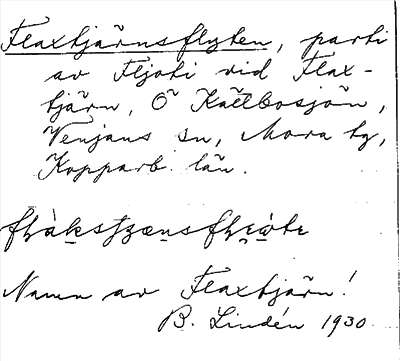 Flaxtjärnsflyten, parti
av Fljoti vid Flax-
tjärn, Ö Kättbosjön,
Venjans sn, Mora tg,
Kopparb. län.
Namn av Flaxtjärn!
B. Lindén 1930